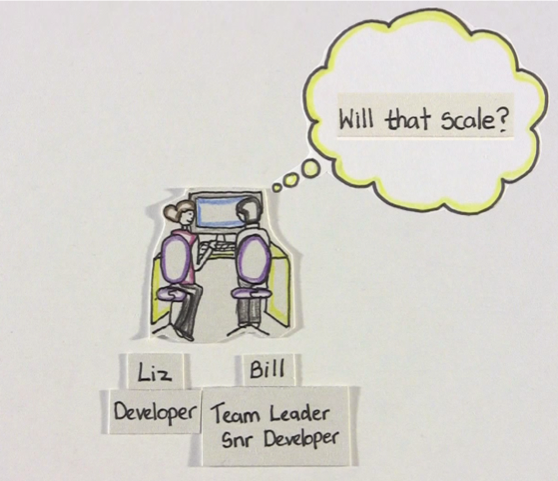 Will that scale?
Liz
Bill
Developer
Team Leader
Snr Developer